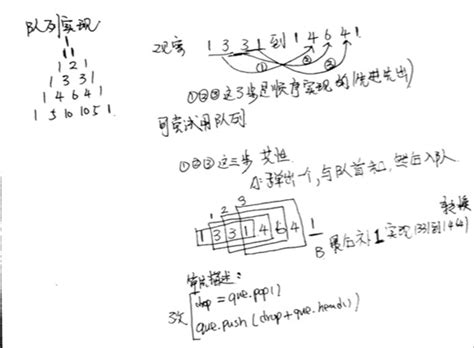 队列实现
1
1 1
1 2 1
1 3 3 1
1 4 6 4 1
1 5 10 10 5 1
观察 1 3 3 1 到 1 4 6 4 1
① ② ③
①②③这3步是顺序实现的(先进先出)
可尝试用队列
①②③这三步
A: 弹出一个,与队首和,然后入队
1 2 3
1 3 3 1 4 6 4 1
B 最后补1 实现1331到1464
算法描述:
3次
drop = que.pop()
que.push(drop+que.head())